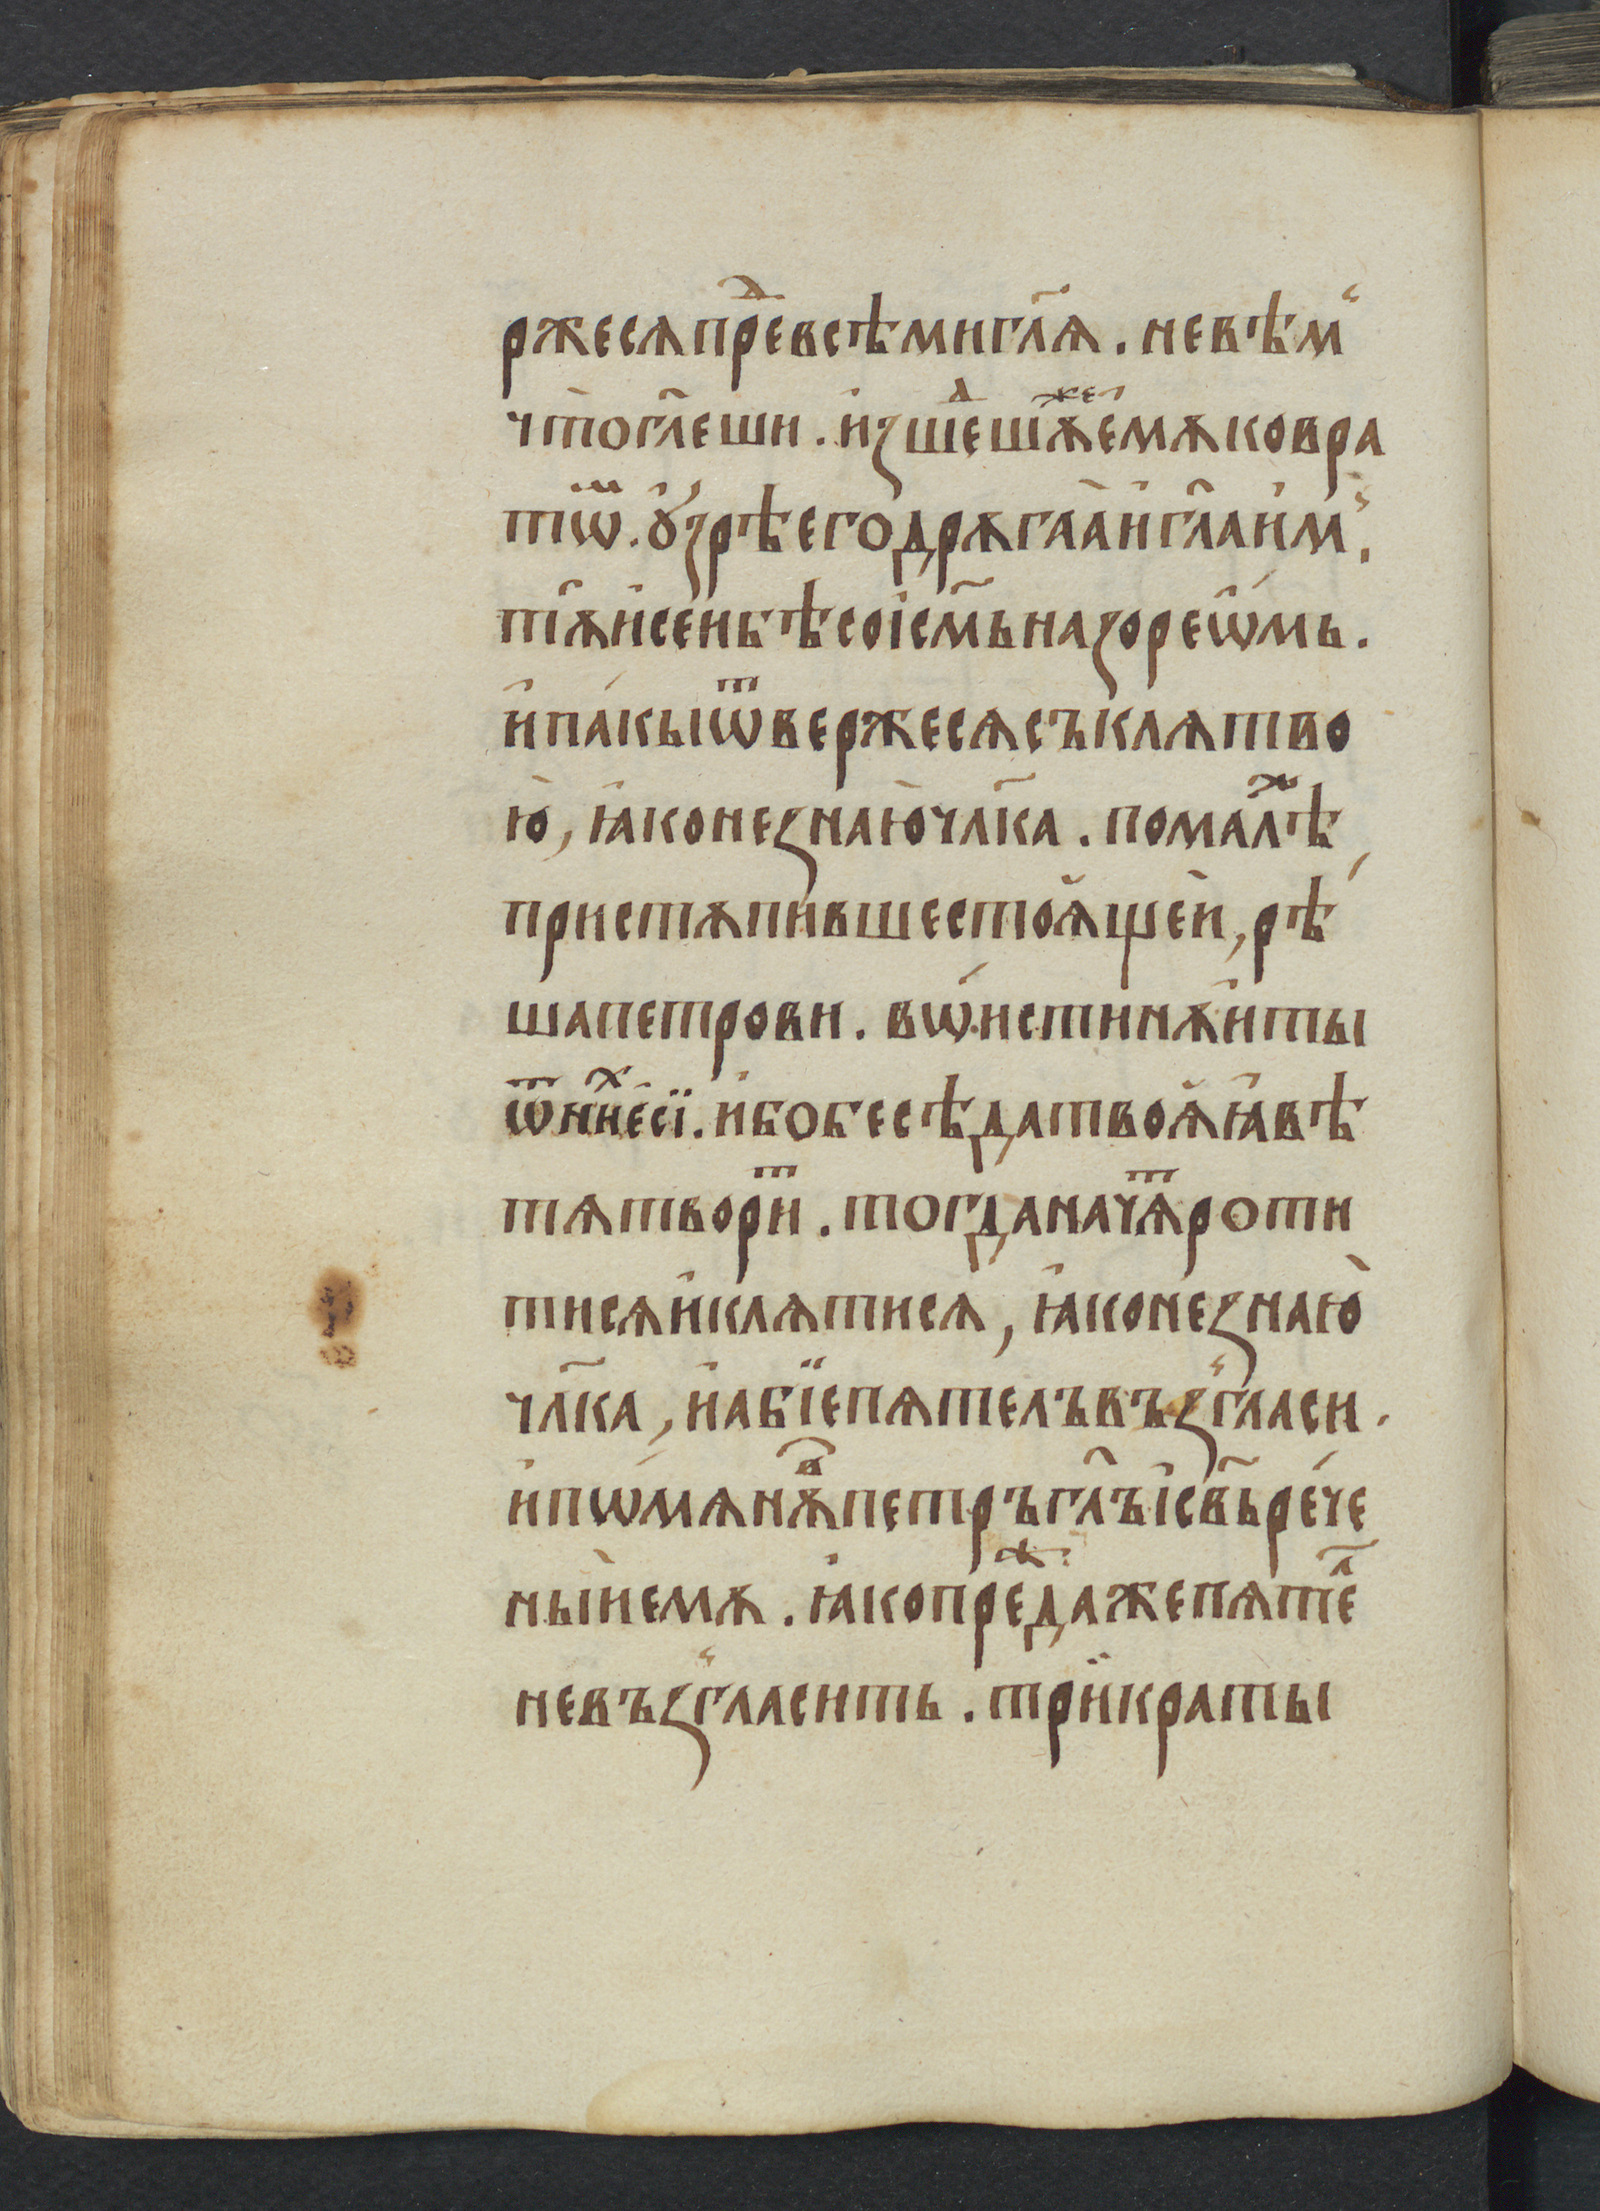 ржесѧ прⷣевсѣми гл҃ѧ . невѣм̾
что̀ гл҃еши . и҆зше́шⷣѫжеемѫ ковра
тѡⷨ . ᲂу҆́зрѣ его̀ дрѫга́ѧ и҆ гл҃а и҆м̾,
тѫ̀ и҆ се́и бѣ со і҆см҃ь назоре́ѡмь .
и҆ па́кы ѿвержесѧ съклѧтво
ю̀, ꙗ҆́ко не зна́ю чл҃ка . помалѣⷤ
пристѫпи́вше стоѧ́щеи, рѣ́
ша петрови . вѡ́истинѫ и҆ ты
ѿ ниⷯ есѝ . и҆бо бесѣда твоѧ̀ ꙗ҆́вѣ
тѧ твориⷮ . тогда начѧⷮ роти
тисѧ и҆ клѧ́тисѧ, ꙗ҆́ко не зна́ю
чл҃ка, и҆ а́бїе пѣтелъ въз̾гласи .
и҆ пѡ́мѧнѫⷡ петръ гл҃ъ і҆св҃ь ре́че
ныи емѫ . ꙗ҆́ко преⷤдаже пѣтеⷧ҇
не въз̾гласить . три́краты